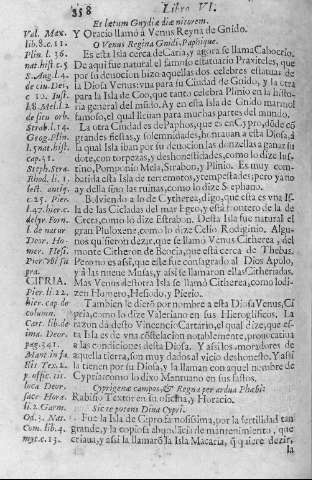 358 Libro VI.
Et lætum Gnydiæ dia nitorem.
Y Oracio llamó à Venus Reyna de Gnido.
O Venus Regina Gnidi, Paphique.
Es esta Isla cerca de Caria, y agora se llama Cabocrio.
De aqui fue natural el famoso estatuario Praxiteles, que
por su deuocion hizo aquellas dos celebres estatuas de
la Diosa Venus: vna para su Ciudad de Gnido, y la otra
para la Isla de Coo, que tanto celebra Plinio en la histo-
ria general del mūdo. Ay en esta Isla de Gnido marmol
famoso, el qual lleuan para muchas partes del mundo.
La otra Ciudad es de Paphos, que es en Cypro, dōde cō
grandes fiestas, y solemnidades, honrauan a esta Diosa, à
la qual Isla iban por su deuocion las donzellas a ganar su
dote, con torpezas, y deshonestidades, como lo dize Ius-
tino, Pomponio Mela, Strabon, y Plinio. Es muy com-
batida esta Isla de terremotos, y tempestades; pero ya no
ay della sino las ruinas, como lo dize Stephano.
Bolviendo a lo de Cytherea, digo, que esta es vna Is-
la de las Cicladas del mar Egeo, y está frontero de la de
Creta, como lo dize Estrabon. Desta Isla fue natural el
gran Philoxene, como lo dize Celio Rodiginio. Algu-
nos quisieron dezir, que se llamó Venus Citherea, del
monte Citheron de Boecia, que está cerca de Thebas.
Pero no es assi, que este fue consagrado al Dios Apolo,
y à las nueue Musas, y assi se llamaron ellas Citheriadas.
Mas Venus desta Isla se llamó Citherea, como lo di-
zen Homero, Hesiodo, y Pierio.
Tambien le dieron por nombre a esta Diosa Venus, Ci
pria, como lo dize Valeriano en sus Hieroglificos. La
razon dà desto Vincencio Cartario, el qual dize, que es-
ta Isla es de vna costelacion notablemente, propicia
a las condiciones desta Diosa. Y assi los moradores de
aquella tierra, son muy dados al vicio deshonesto. Y assi
la tienen por su Diosa, y la llaman con aquel nombre de
Cypria: como lo dixo Mantuano en sus fastos.
Cyprigena campos, & Regna per ardua Phœbit
Rabisio Textor en su oficina, y Horacio.
Sic te potens Diua Cypri.
Fue la Isla de Cypro famosissima, por la fertilidad tan
grande, y la copiosa abundācia de mantenimiento, que
criaua, y assi la llamarō la Isla Macaria, q̄ quiere dezir,
la
Val. Max.
lib. 8. c. 11.
Plin. l. 36.
nat. hist. c. 5
S. Aug. l. 4.
de ciu. Dei,
c. 10. Iust.
l. 8. Mel. l. 2
de situ orb.
Strab. l. 14.
Geog. Plin.
l. 5. nat. hist.
cap. 31.
Steph. Stra.
Rhod. li. 1.
lect. antiq.
c. 25. Pier.
l. 47. hierac.
Deor. Ho-
mer. Hesi.
CIPRIA.
Pier. li. 22.
hier. cap de
column.
Cart. lib. de
ima. Deor.
pag. 341.
Mant in fa.
Tex. 2.
p. offic. tit.
loca Deor.
sacr. Hora.
li. 2. Carm.
Od. 3. Nat.
Com. lib. 4.
myt. c. 13.